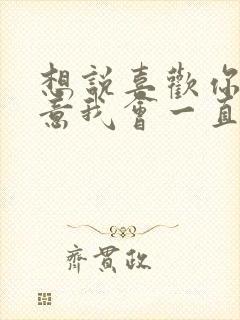 想說喜歡你
意我會一直
齊貫政